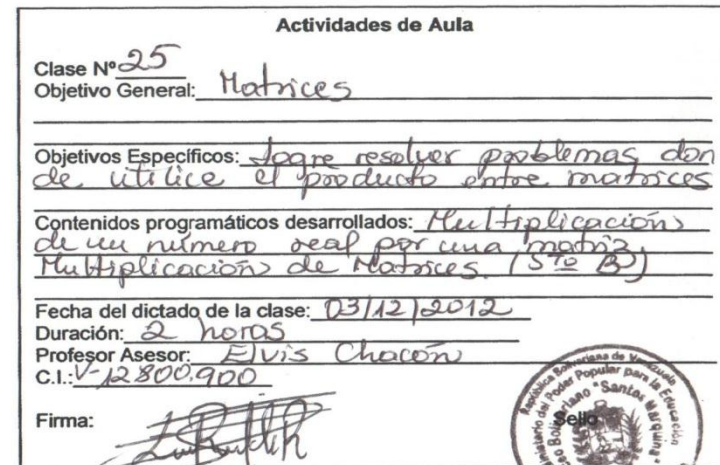 Actividades de Aula
Clase Nº 25
Objetivo General: Matrices
Objetivos Específicos: Logre resolver problemas don
de utilice el producto entre matrices
Contenidos programáticos desarrollados: Multiplicación
de un número real por una matriz,
Multiplicación de Matrices. (5to B)
Fecha del dictado de la clase: 03/12/2012
Duración: 2 horas
Profesor Asesor: Elvis Chacón
C.I.: V-12.800.900
Firma:
Sello
República Bolivariana de Venezuela
Ministerio del Poder Popular para la Educación
Bolivariano "Santos Marquina"